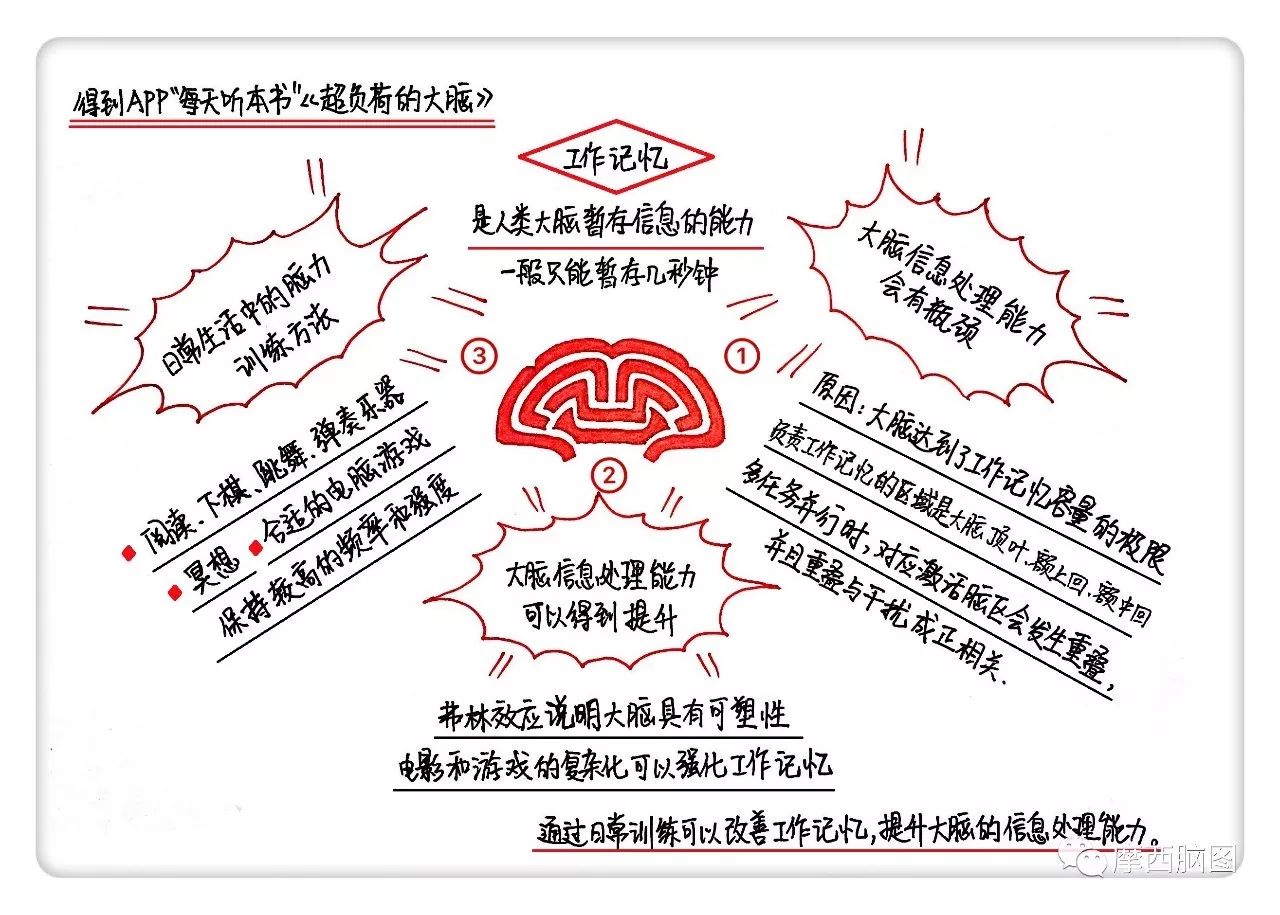 得到APP"每天听本书"《超负荷的大脑》
工作记忆
是人类大脑暂存信息的能力
一般只能暂存几秒钟
①
大脑信息处理能力
会有瓶颈
原因:大脑达到了工作记忆容量的极限
负责工作记忆的区域是大脑顶叶、额上回、额中回
多任务并行时,对应激活脑区会发生重叠,
并且重叠与干扰成正相关.
②
大脑信息处理能力
可以得到提升
弗林效应说明大脑具有可塑性
电影和游戏的复杂化可以强化工作记忆
③
日常生活中的脑力
训练方法
阅读、下棋、跳舞、弹奏乐器
冥想 合适的电脑游戏
保持较高的频率和强度
通过日常训练可以改善工作记忆,提升大脑的信息处理能力。
摩西脑图